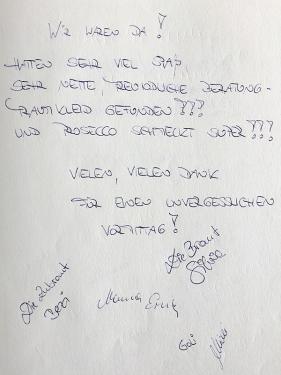 WIR WAREN DA!
HATTEN SEHR VIEL SPAß,
SEHR NETTE, FREUNDLICHE BERATUNG -
BRAUTKLEID GEFUNDEN!!!
UND PROSECCO SCHMECKT SUPER!!!
VIELEN, VIELEN DANK
FÜR EINEN UNVERGESSLICHEN
VORMITTAG!
Die Braut
Die
Mama